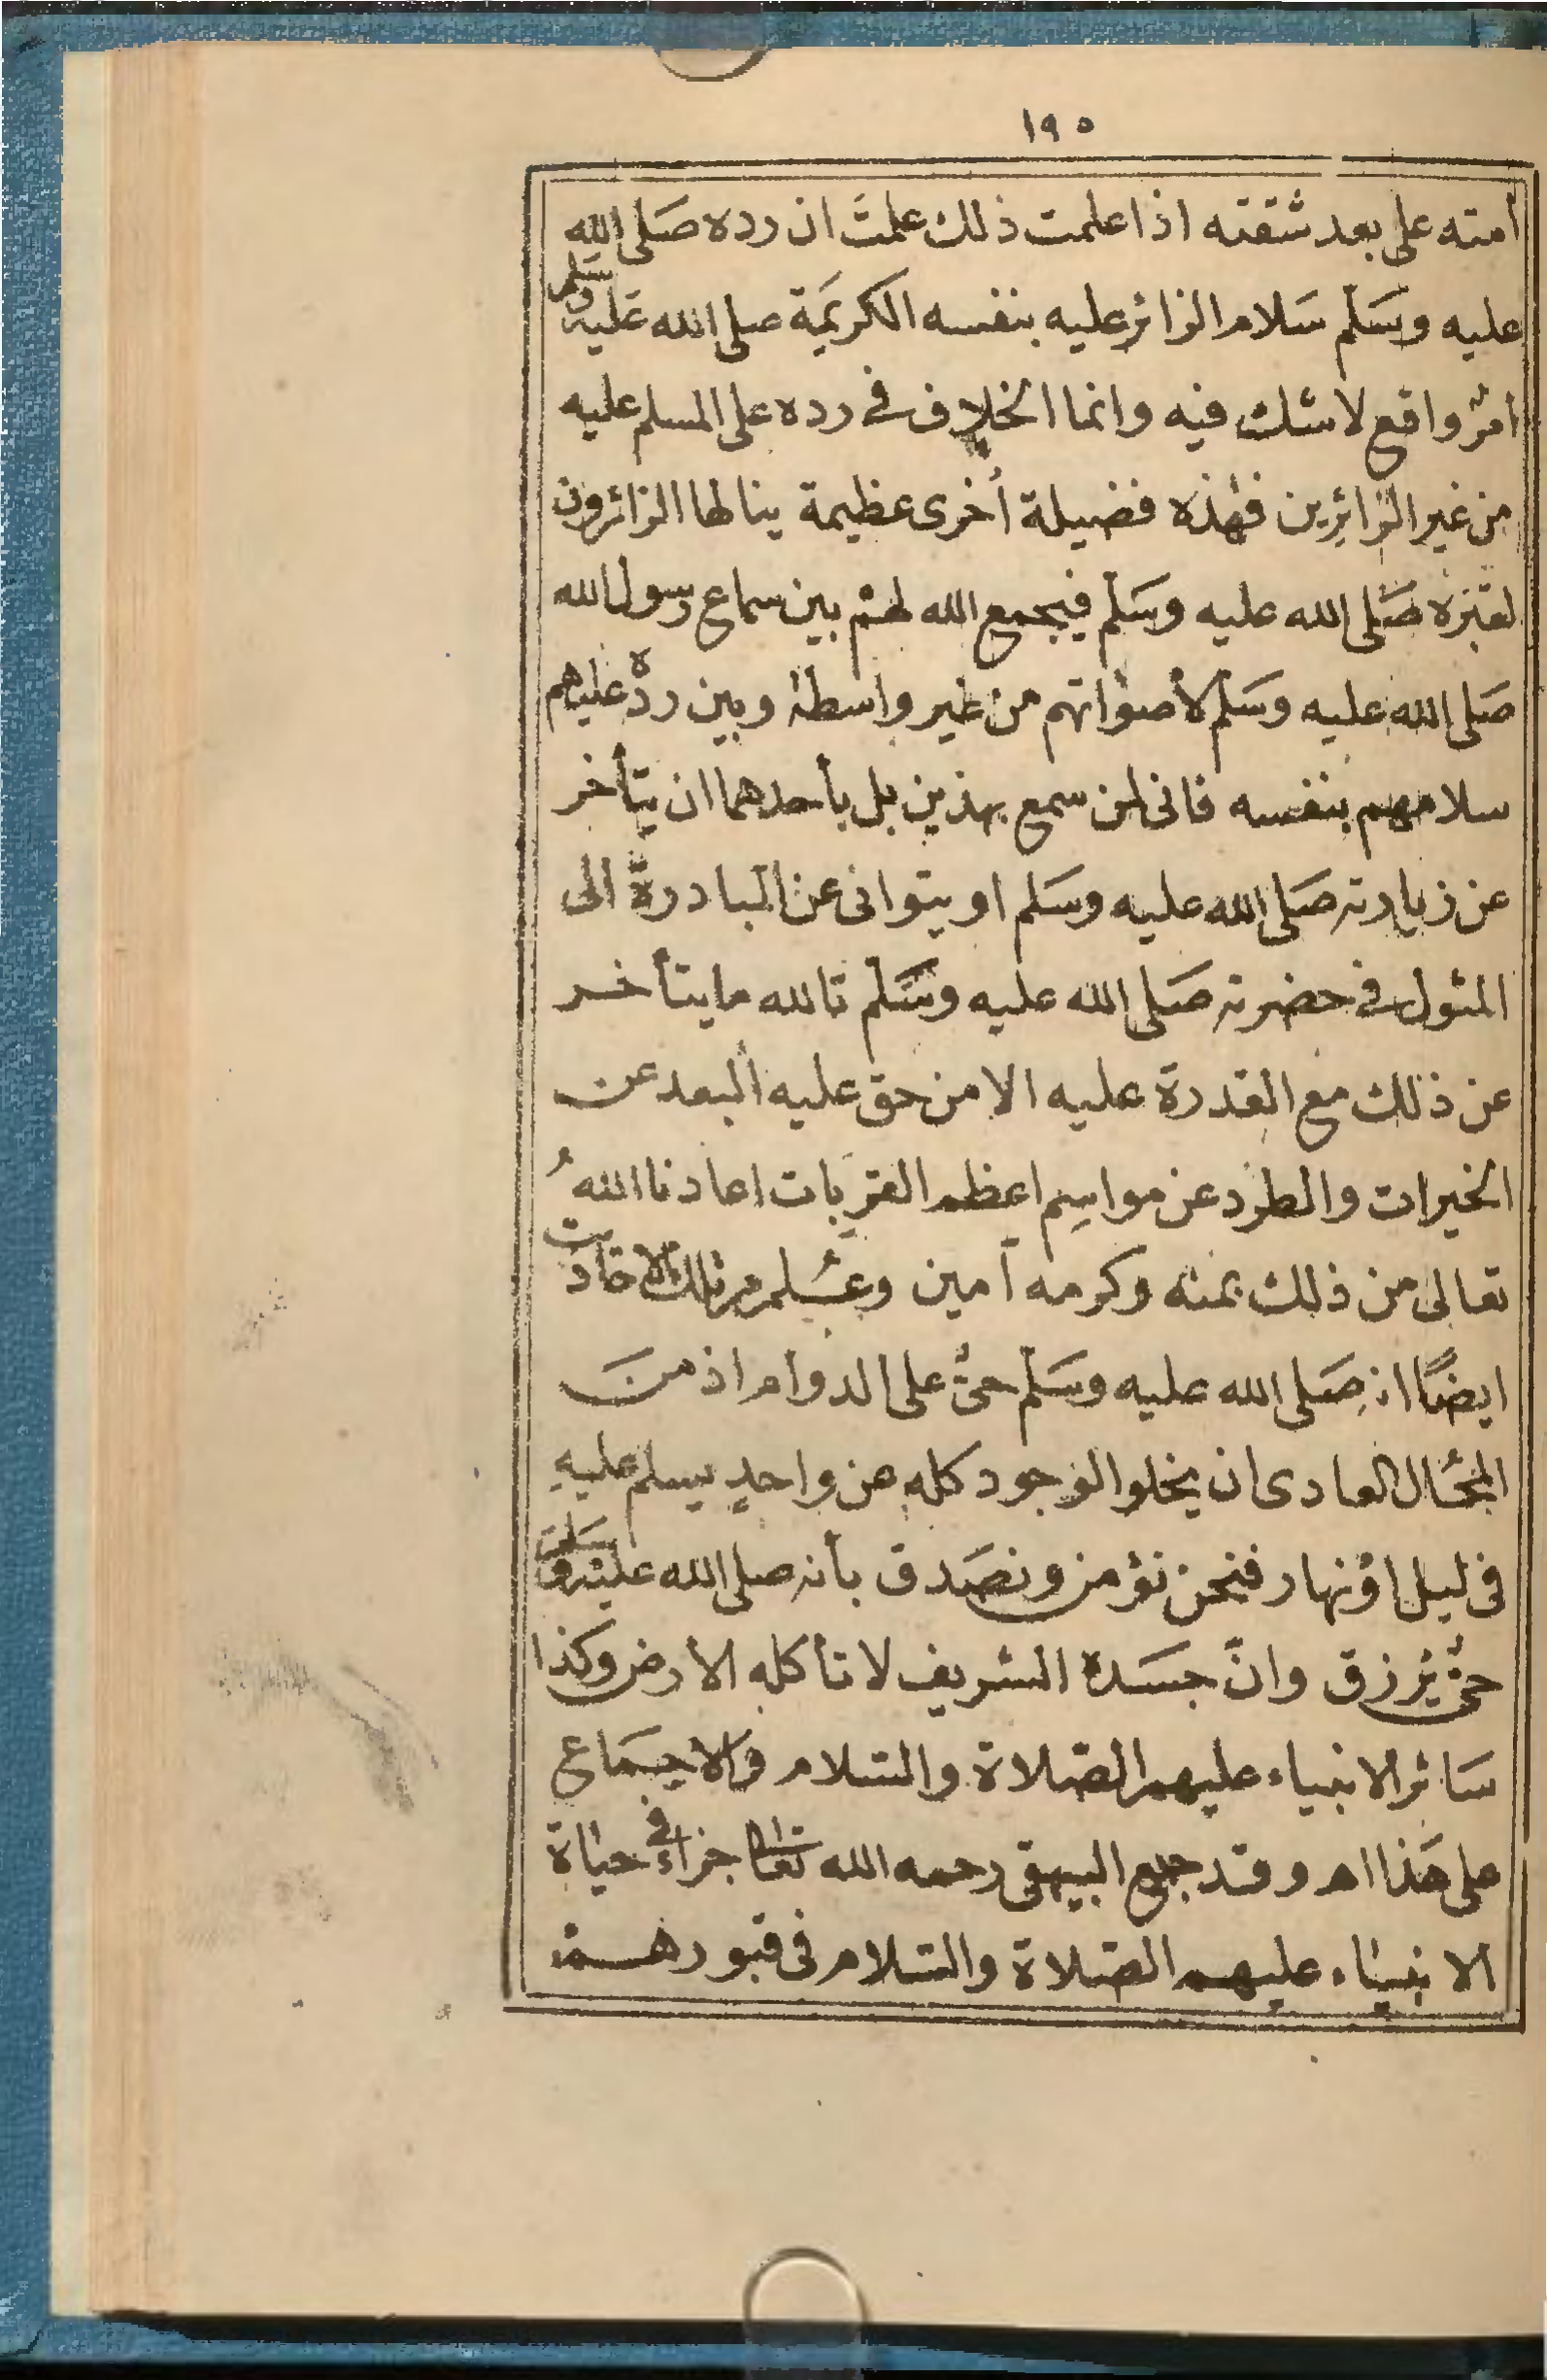 ١٩٥
امته على بعد شقته اذا علمت ذلك علمت ان رده صَلى الله
عليه وسَلم سَلام الزائر عليه بنفسه الكريمَة صلى الله عَليه وسلم
امر واقع لا شك فيه وانما الخلاف في رده على المسلم عليه
من غير الزائرين فهذه فضيلة أخرى عظيمة ينالها الزائرون
لقبره صَلى الله عليه وسَلم فيجمع الله لهم بين سماع رسول الله
صَلى الله عليه وسَلم لأصواتهم من غير واسطة وبين ردّه عليهم
سلامهم بنفسه فانى لمن سمع بهذين بل بأحدهما ان يتأخر
عن زيارته صَلى الله عليه وسَلم او يتوانى عن المبادرة الى
المثول في حضرته صَلى الله عليه وسَلم تالله ما يتأخر
عن ذلك مع القدرة عليه الا من حق عليه البعد عن
الخيرات والطرد عن مواسِم اعظم القربات اعاذنا اللهُ
تعالى من ذلك بمنه وكرمه آمين وعُلم من تلك الاحاديث
ايضًا انه صَلى الله عليه وسَلم حىّ على الدوام اذ منَ
المحَال العادى ان يخلوا الوجود كله من واحدٍ يسلم عليهِ
فى ليل اونهار فنحن نؤمن ونصَدق بأنه صلى الله عليه وسَلم
حىّ يُرزق وانّ جسَده الشريف لا تأكله الأرض وكذا
سَائر الانبياء عليهم الصّلاة والسّلام والاجمَاع
على هَذا اه وقد جمع البيهقى رحمه الله تعالى جزاءً في حياة
الانبيَاء عليهم الصّلاة والسّلام فى قبورهم